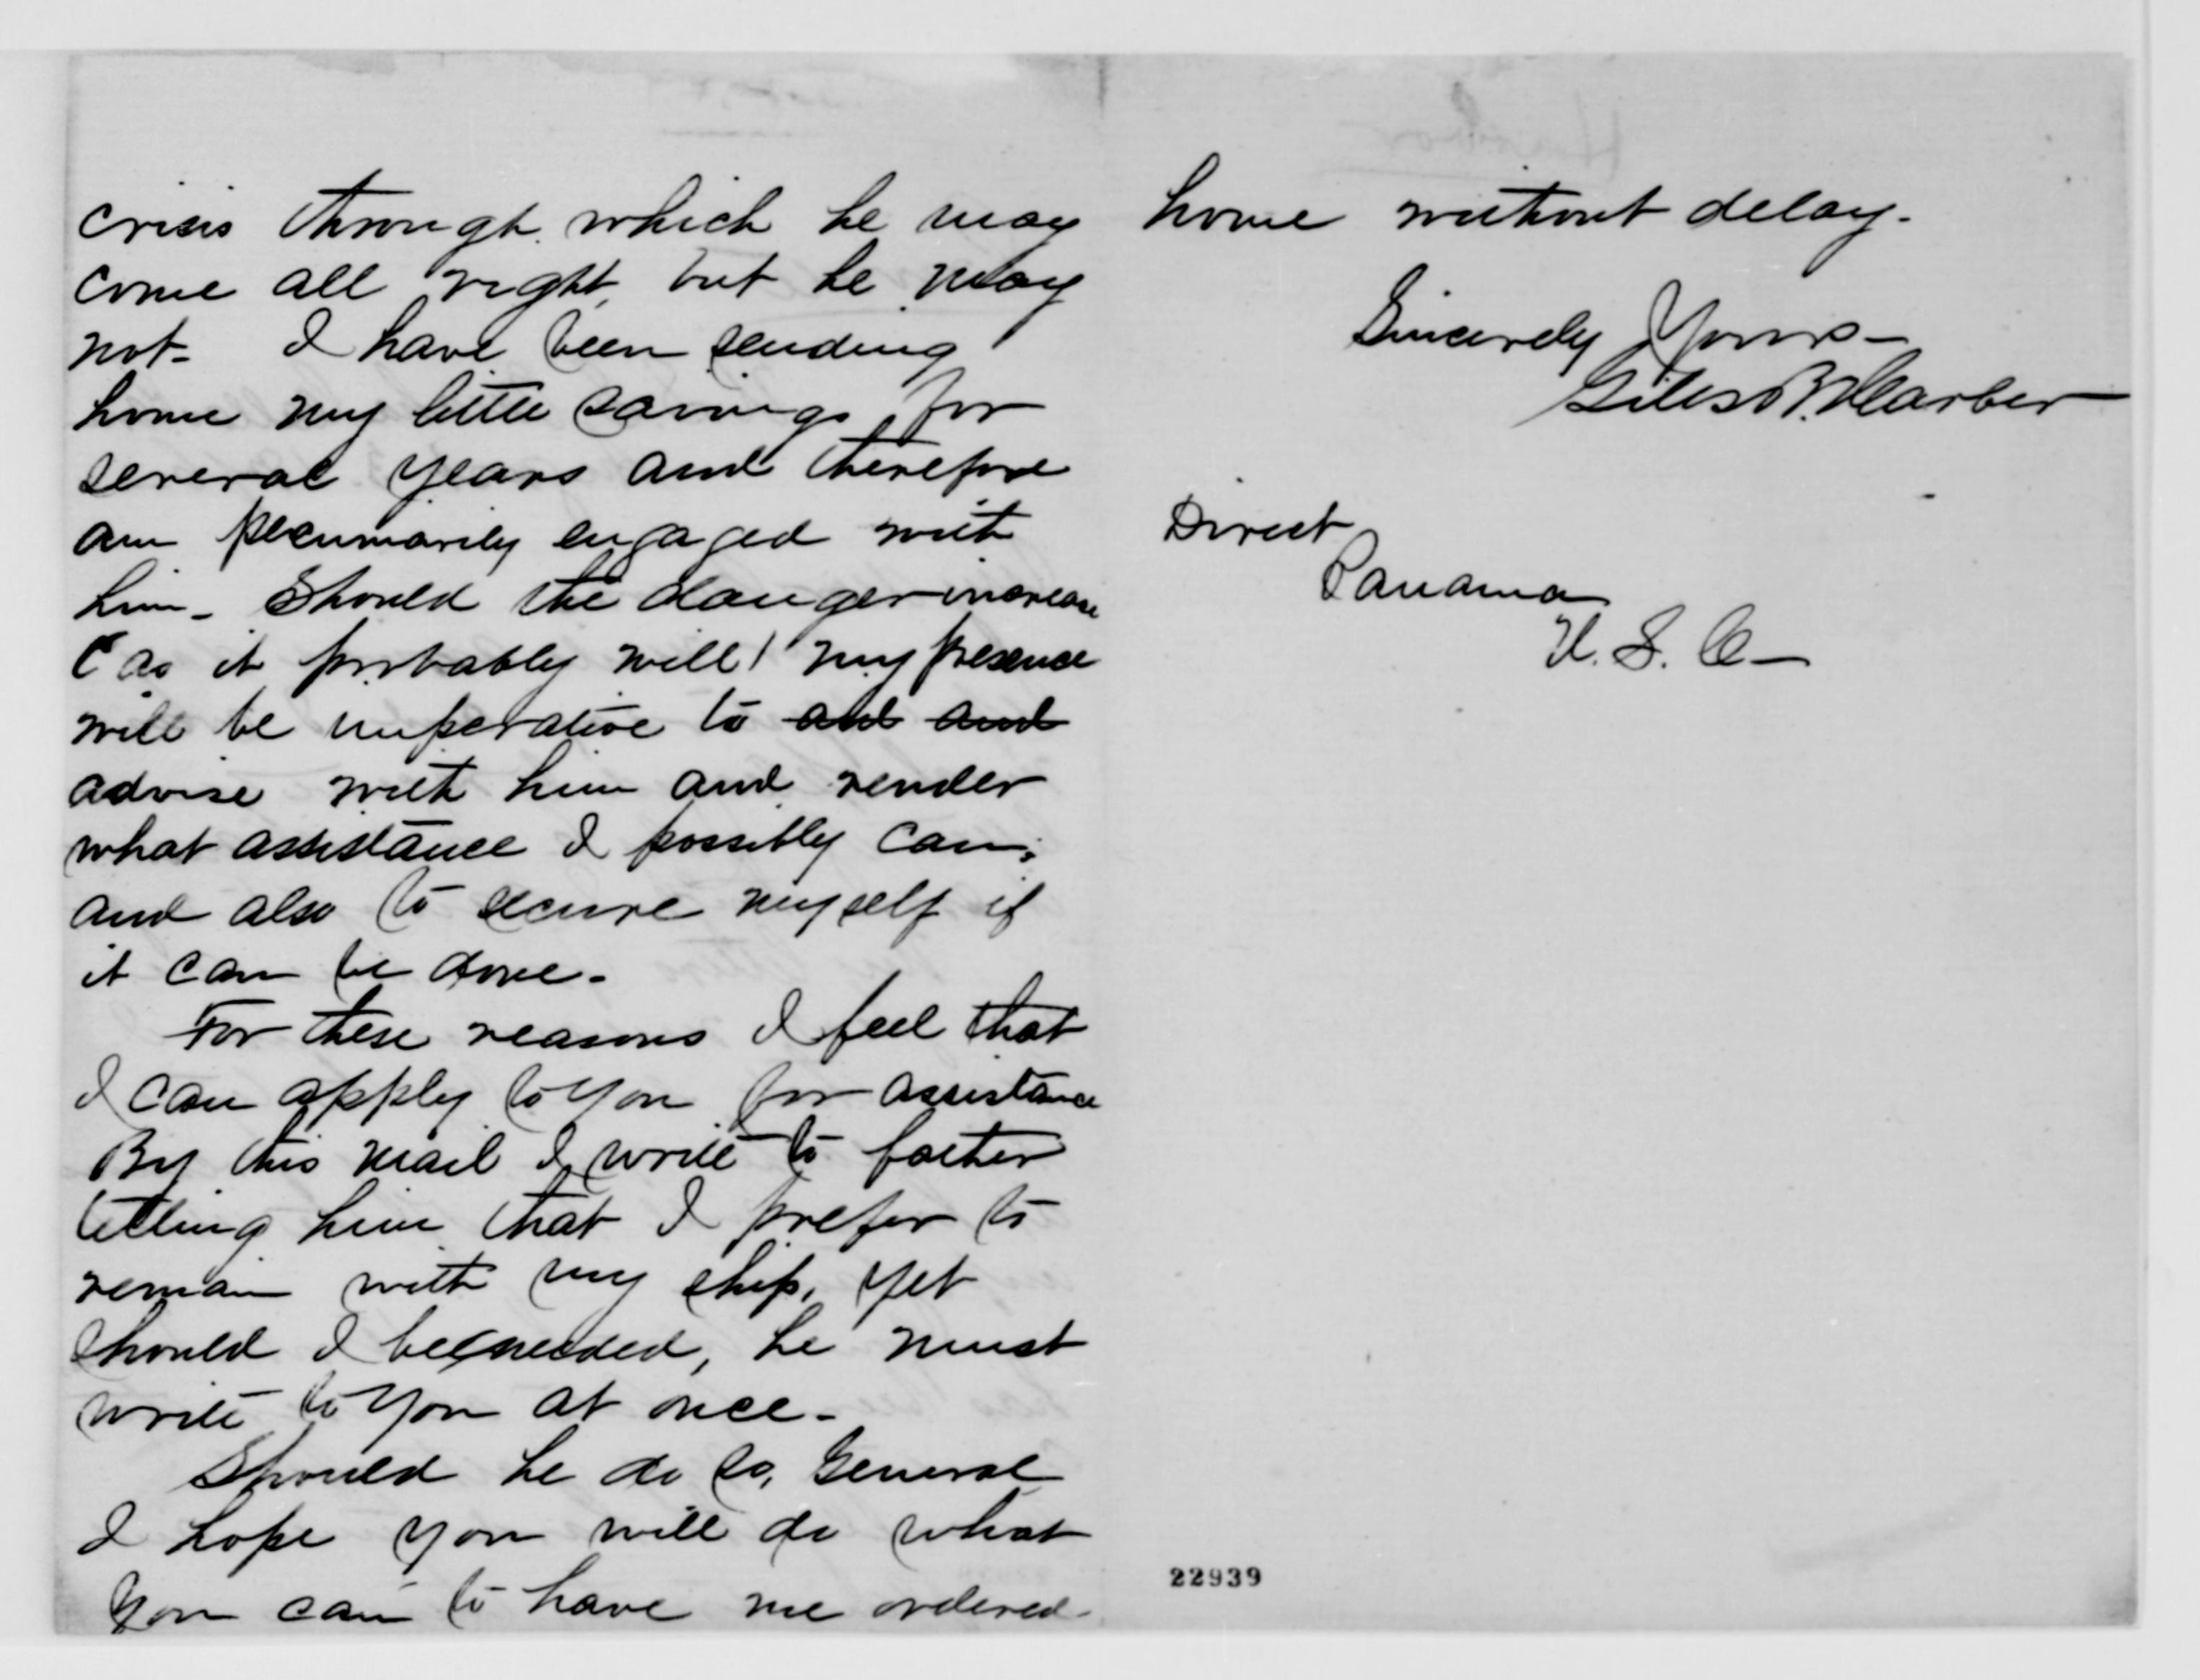 crisis through which he may
come all right, but he may
not- I have been sending
home my little savings for
several years and therefore
am pecuniarily engaged with
him- Should the danger increase
(as it probably will) my presence
will be imperative to aid and
advise with him and render
what assistance I possibly can;
and also to secure myself if
it can be done-
For these reasons I feel that
I can apply to you for assistance
By this mail I write to father
telling him that I prefer to
remain with my ship, yet
should I be needed, he must
write to you at once-
Should he do so, General
I hope you will do what
you can to have me ordered
home without delay-
Sincerely Yours-
Giles B. Harber
Direct
Panama
U. S. C-
22939